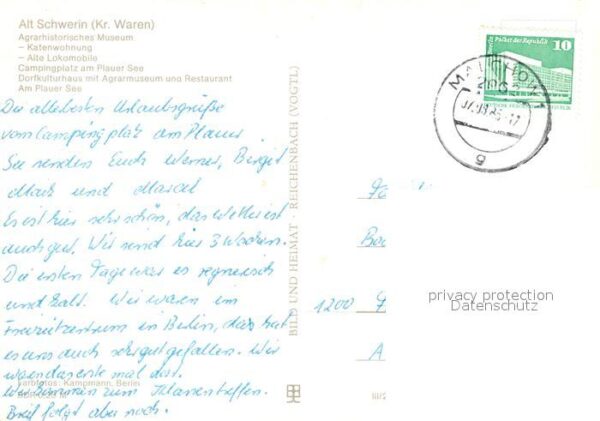 Alt Schwerin (Kr. Waren)
Agrarhistorisches Museum
– Katenwohnung
– Alte Lokomobile
Campingplatz am Plauer See
Dorfkulturhaus mit Agrarmuseum und Restaurant
Am Plauer See
Die allerbesten Urlaubsgrüße
vom Campingplatz am Plauer
See senden Euch Werner, Birgit
Maik und Marcel
Es ist hier sehr schön, das Wetter ist
auch gut. Wir sind hier 3 Wochen.
Die ersten Tage war es regnerisch
und kalt. Wir waren im
Freizeitzentrum in Berlin, das hat
es uns auch sehr gut gefallen. Wir
waren das erste mal dort.
Wir kommen zum Klassentreffen.
Brief folgt aber noch.
Farbfotos: Kampmann, Berlin
BILD UND HEIMAT · REICHENBACH (VOGTL)
Palast der Republik
10
DDR
MALCHOW 1
g
1200
A
privacy protection
Datenschutz